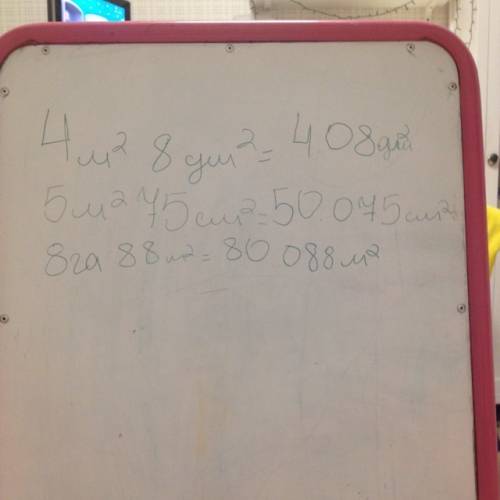 4 м² 8 дм² = 408 дм²
5 м² 75 см² = 50 075 см²
8 га 88 м² = 80 088 м²